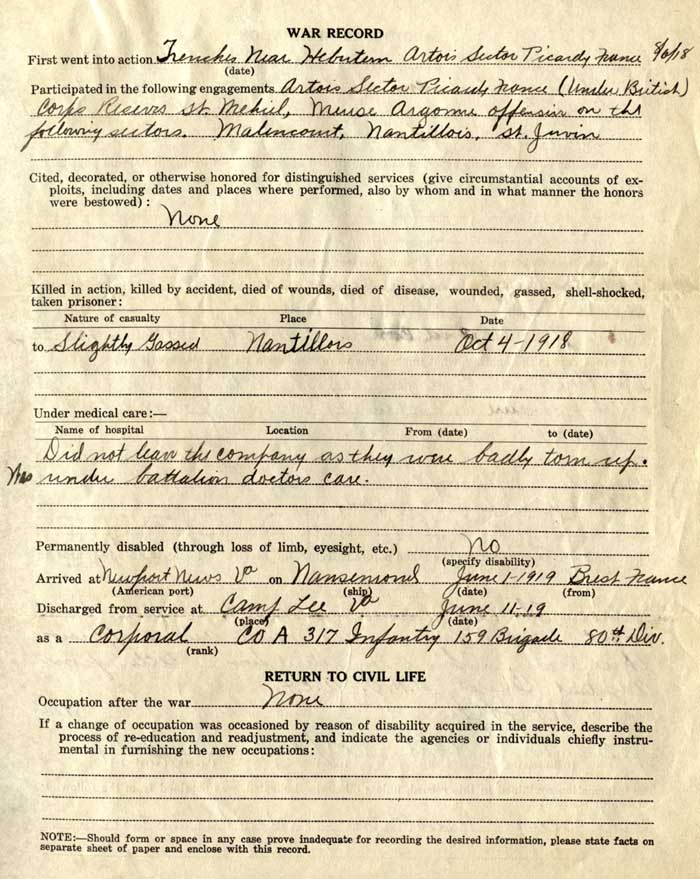 WAR RECORD
First went into action Trenches Near Hebutern Artois Sector Picardy France 8/6/18
(date)
Participated in the following engagements Artois Sector Picardy France (Under British)
Corps Reserves St. Mehiel, Meuse Argonne offensive on the
following sectors. Malincourt, Nantillois, St. Juvin
Cited, decorated, or otherwise honored for distinguished services (give circumstantial accounts of ex-
ploits, including dates and places where performed, also by whom and in what manner the honors
were bestowed) :
None
Killed in action, killed by accident, died of wounds, died of disease, wounded, gassed, shell-shocked,
taken prisoner:
Nature of casualty Place Date
to Slightly Gassed Nantillois Oct 4-1918
Under medical care:—
Name of hospital Location From (date) to (date)
Did not leave the company as they were badly torn up.
Was under battalion doctors care.
Permanently disabled (through loss of limb, eyesight, etc.) No
(specify disability)
Arrived at Newport News Va on Nansemond June 1-1919 Brest France
(American port) (ship) (date) (from)
Discharged from service at Camp Lee Va June 11-19
(place) (date)
as a Corporal Co A 317 Infantry 159 Brigade 80th Div.
(rank)
RETURN TO CIVIL LIFE
Occupation after the war None
If a change of occupation was occasioned by reason of disability acquired in the service, describe the
process of re-education and readjustment, and indicate the agencies or individuals chiefly instru-
mental in furnishing the new occupations:
NOTE:—Should form or space in any case prove inadequate for recording the desired information, please state facts on
separate sheet of paper and enclose with this record.